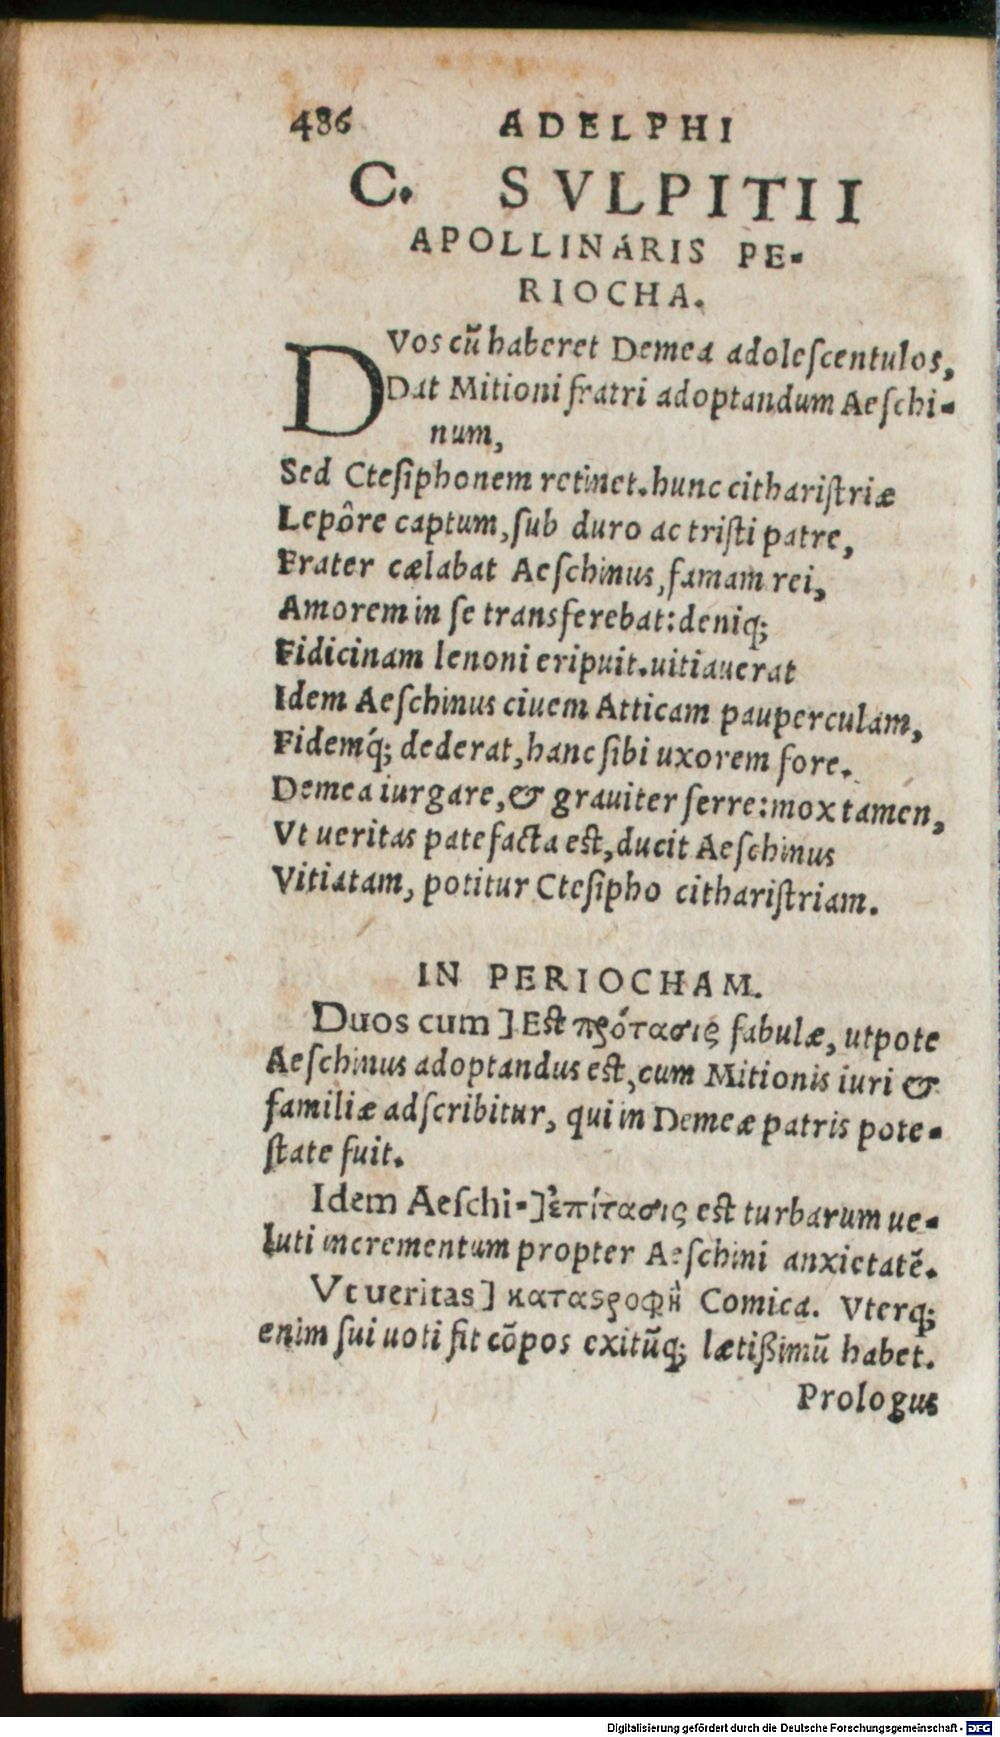 486 ADELPHI
C. SVLPITII
APOLLINARIS PE-
RIOCHA.
DVos cũ haberet Demea adoleſcentulos,
Dat Mitioni fratri adoptandum Aeſchi-
num,
Sed Cteſiphonem retinet. hunc cithariſtriæ
Lepôre captum, ſub duro ac triſti patre,
Frater cælabat Aeſchinus, famam rei,
Amorem in ſe transferebat: deniq;
Fidicinam lenoni eripuit. uitiauerat
Idem Aeſchinus ciuem Atticam pauperculam,
Fidemq́; dederat, hanc ſibi uxorem fore.
Demea iurgare, & grauiter ferre: mox tamen,
Vt ueritas patefacta eſt, ducit Aeſchinus
Vitiatam, potitur Cteſipho cithariſtriam.
IN PERIOCHAM.
Duos cum ] Eſt πρότασις fabulæ, utpote
Aeſchinus adoptandus eſt, cum Mitionis iuri &
familiæ adſcribitur, qui in Demeæ patris pote-
ſtate fuit.
Idem Aeſchi-] ἐπίτασις eſt turbarum ue-
luti incrementum propter Aeſchini anxietatẽ.
Vt ueritas ] καταϛροφὴ Comica. Vterq;
enim ſui uoti fit cõpos exitũq; lætißimũ habet.
Prologus
Digitalisierung gefördert durch die Deutsche Forschungsgemeinschaft - DFG